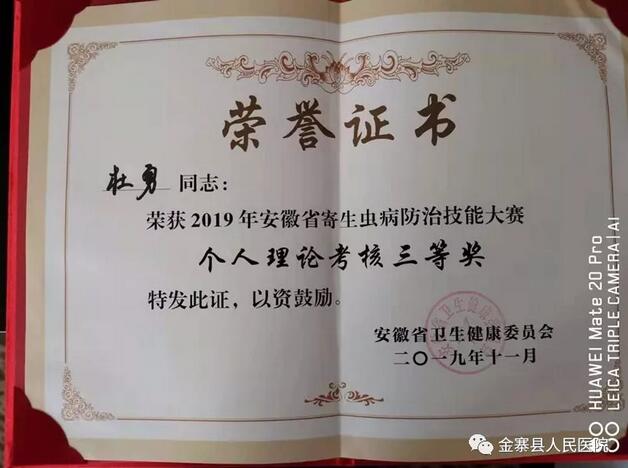 荣誉证书
杜勇 同志：
荣获2019年安徽省寄生虫病防治技能大赛
个人理论考核三等奖
特发此证，以资鼓励。
安徽省卫生健康委员会
二〇一九年十一月
HUAWEI Mate 20 Pro
LEICA TRIPLE CAMERA | AI
金寨县人民医院